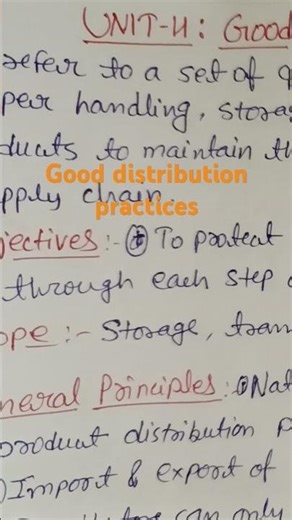 UNIT-II: Good
refer to a set of
per handling, stora
ducts to maintain th
Good distribution
practices
pply chain.
jectives:- To protect
through each step
ope:- Storage, tran
neral Principles: Nat
product distribution p
Import & export of
can only